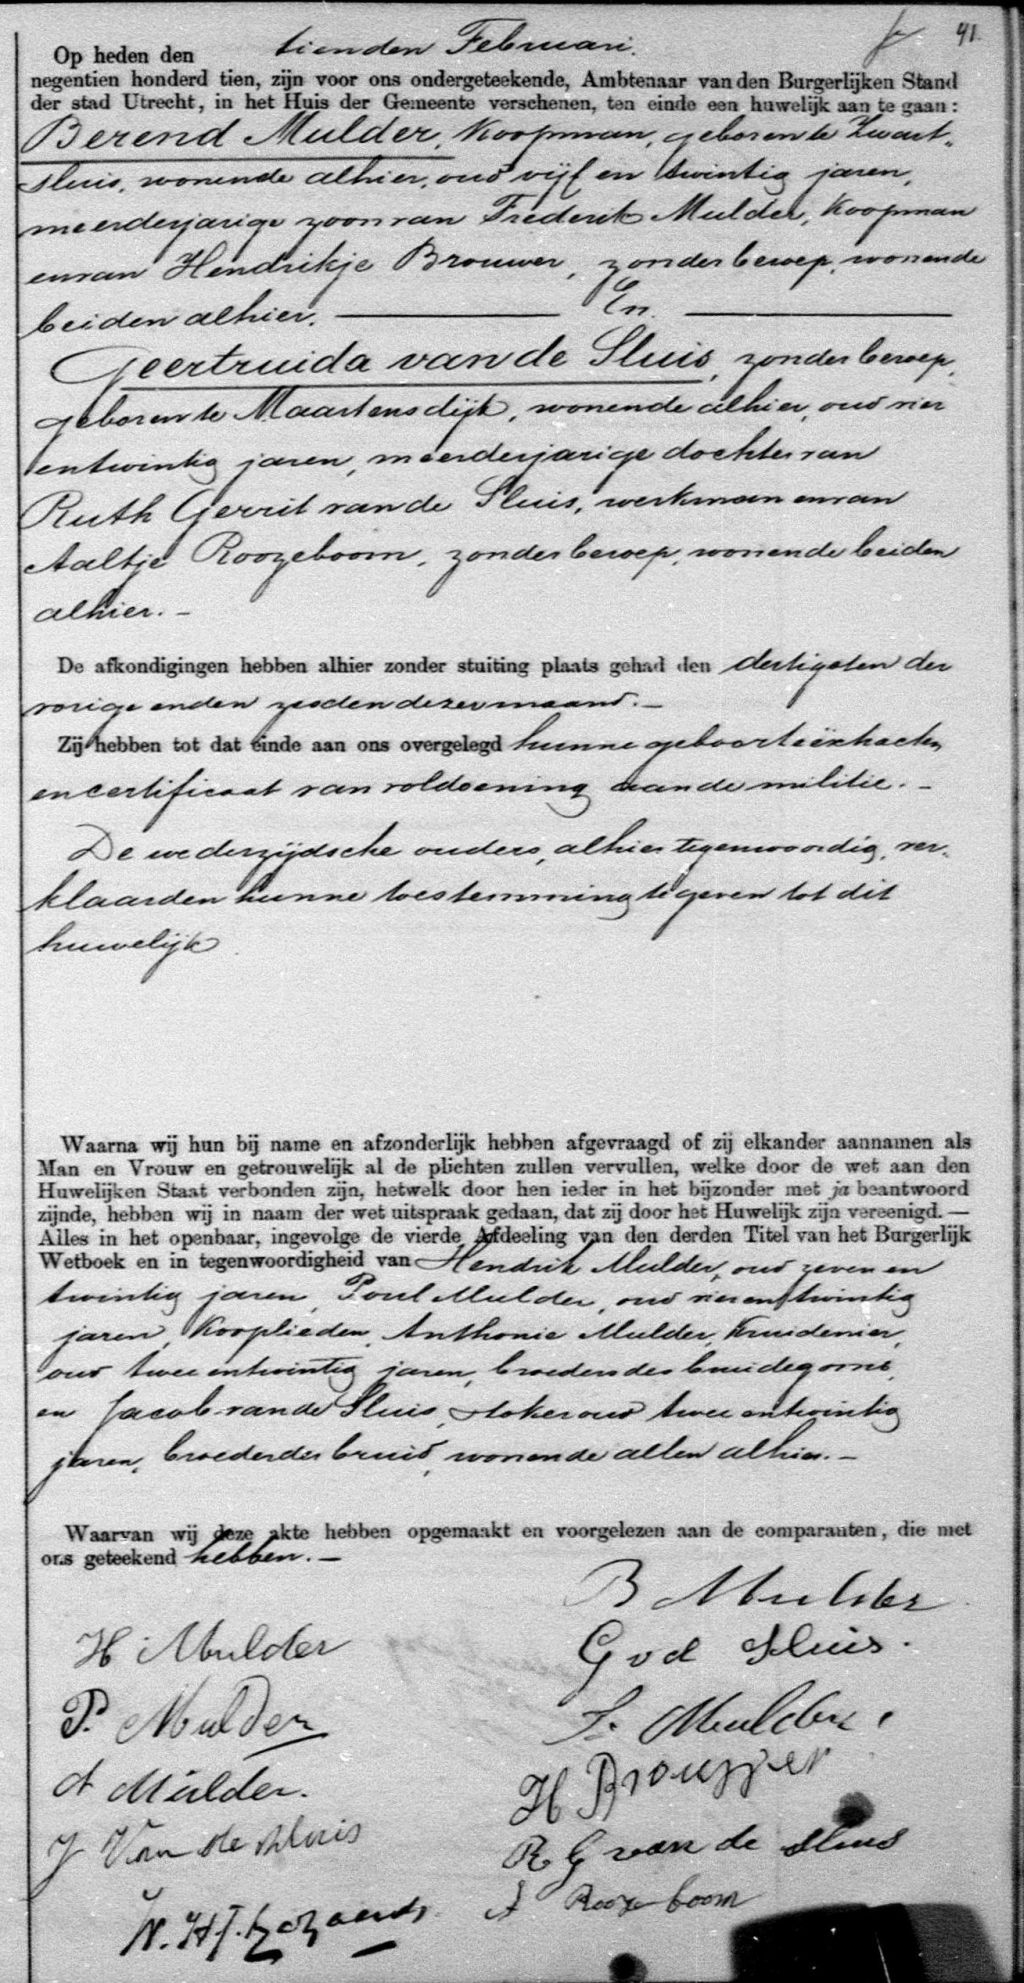 41.
Op heden den tienden Februari.
negentien honderd tien, zijn voor ons ondergeteekende, Ambtenaar van den Burgerlijken Stand
der stad Utrecht, in het Huis der Gemeente verschenen, ten einde een huwelijk aan te gaan:
Berend Mulder, Koopman, geboren te Zwart-
sluis, wonende alhier, oud vijf en twintig jaren,
meerderjarige zoon van Frederik Mulder, Koopman
en van Hendrikje Brouwer, zonder beroep, wonende
beiden alhier. En.
Geertruida van de Sluis, zonder beroep,
geboren te Maartensdijk, wonende alhier, oud vier
en twintig jaren, meerderjarige dochter van
Ruth Gerrit van de Sluis, werkman en van
Aaltje Roozeboom, zonder beroep, wonende beiden
alhier. -
De afkondigingen hebben alhier zonder stuiting plaats gehad den dertigsten der
vorige en den zesden dezer maand. -
Zij hebben tot dat einde aan ons overgelegd hunne geboorteëxtracten
en certificaat van voldoening aan de militie. -
De wederzijdsche ouders, alhier tegenwoordig, ver-
klaarden hunne toestemming te geven tot dit
huwelijk.
Waarna wij hun bij name en afzonderlijk hebben afgevraagd of zij elkander aannamen als
Man en Vrouw en getrouwelijk al de plichten zullen vervullen, welke door de wet aan den
Huwelijken Staat verbonden zijn, hetwelk door hen ieder in het bijzonder met ja beantwoord
zijnde, hebben wij in naam der wet uitspraak gedaan, dat zij door het Huwelijk zijn vereenigd. —
Alles in het openbaar, ingevolge de vierde Afdeeling van den derden Titel van het Burgerlijk
Wetboek en in tegenwoordigheid van Hendrik Mulder, oud zeven en
twintig jaren, Poul Mulder, oud vier en twintig
jaren, Kooplieden, Anthonie Mulder, Kruidenier,
oud twee en twintig jaren, broeders des bruidegoms,
en Jacob van de Sluis, stoker oud twee en twintig
jaren, broeder der bruid, wonende allen alhier. -
Waarvan wij deze akte hebben opgemaakt en voorgelezen aan de comparanten, die met
ons geteekend hebben. -
B Mulder
H Mulder
G v d Sluis.
P. Mulder
F. Mulder
A Mulder.
H Brouwer
J Van de Sluis
R G van de Sluis
A Roozeboom
W. H. J.